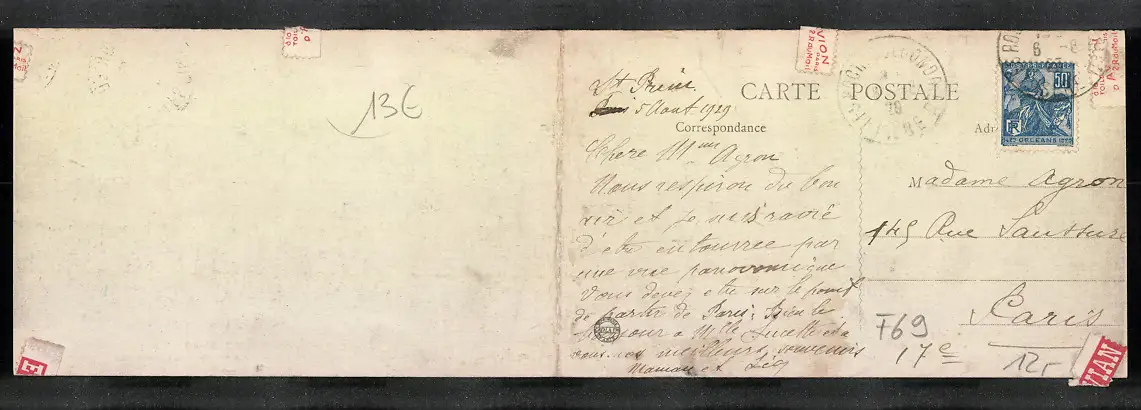 13€
St Prime
5 Aout 1929
CARTE POSTALE
Correspondance
Chere Mme Agron
Nous respiron du bon
air et je suis ravie
d'etre entourrée par
une vue panoromique
Vous devez etre sur le point
de partir de Paris, Bien le
Bonjour a Mlle Lucette et a
vous nos meilleurs souvenirs
Maman et
50c
ORLEANS
RF
Madame Agron
145 Rue Saussure
Paris
17e
F69
12,-
AVION